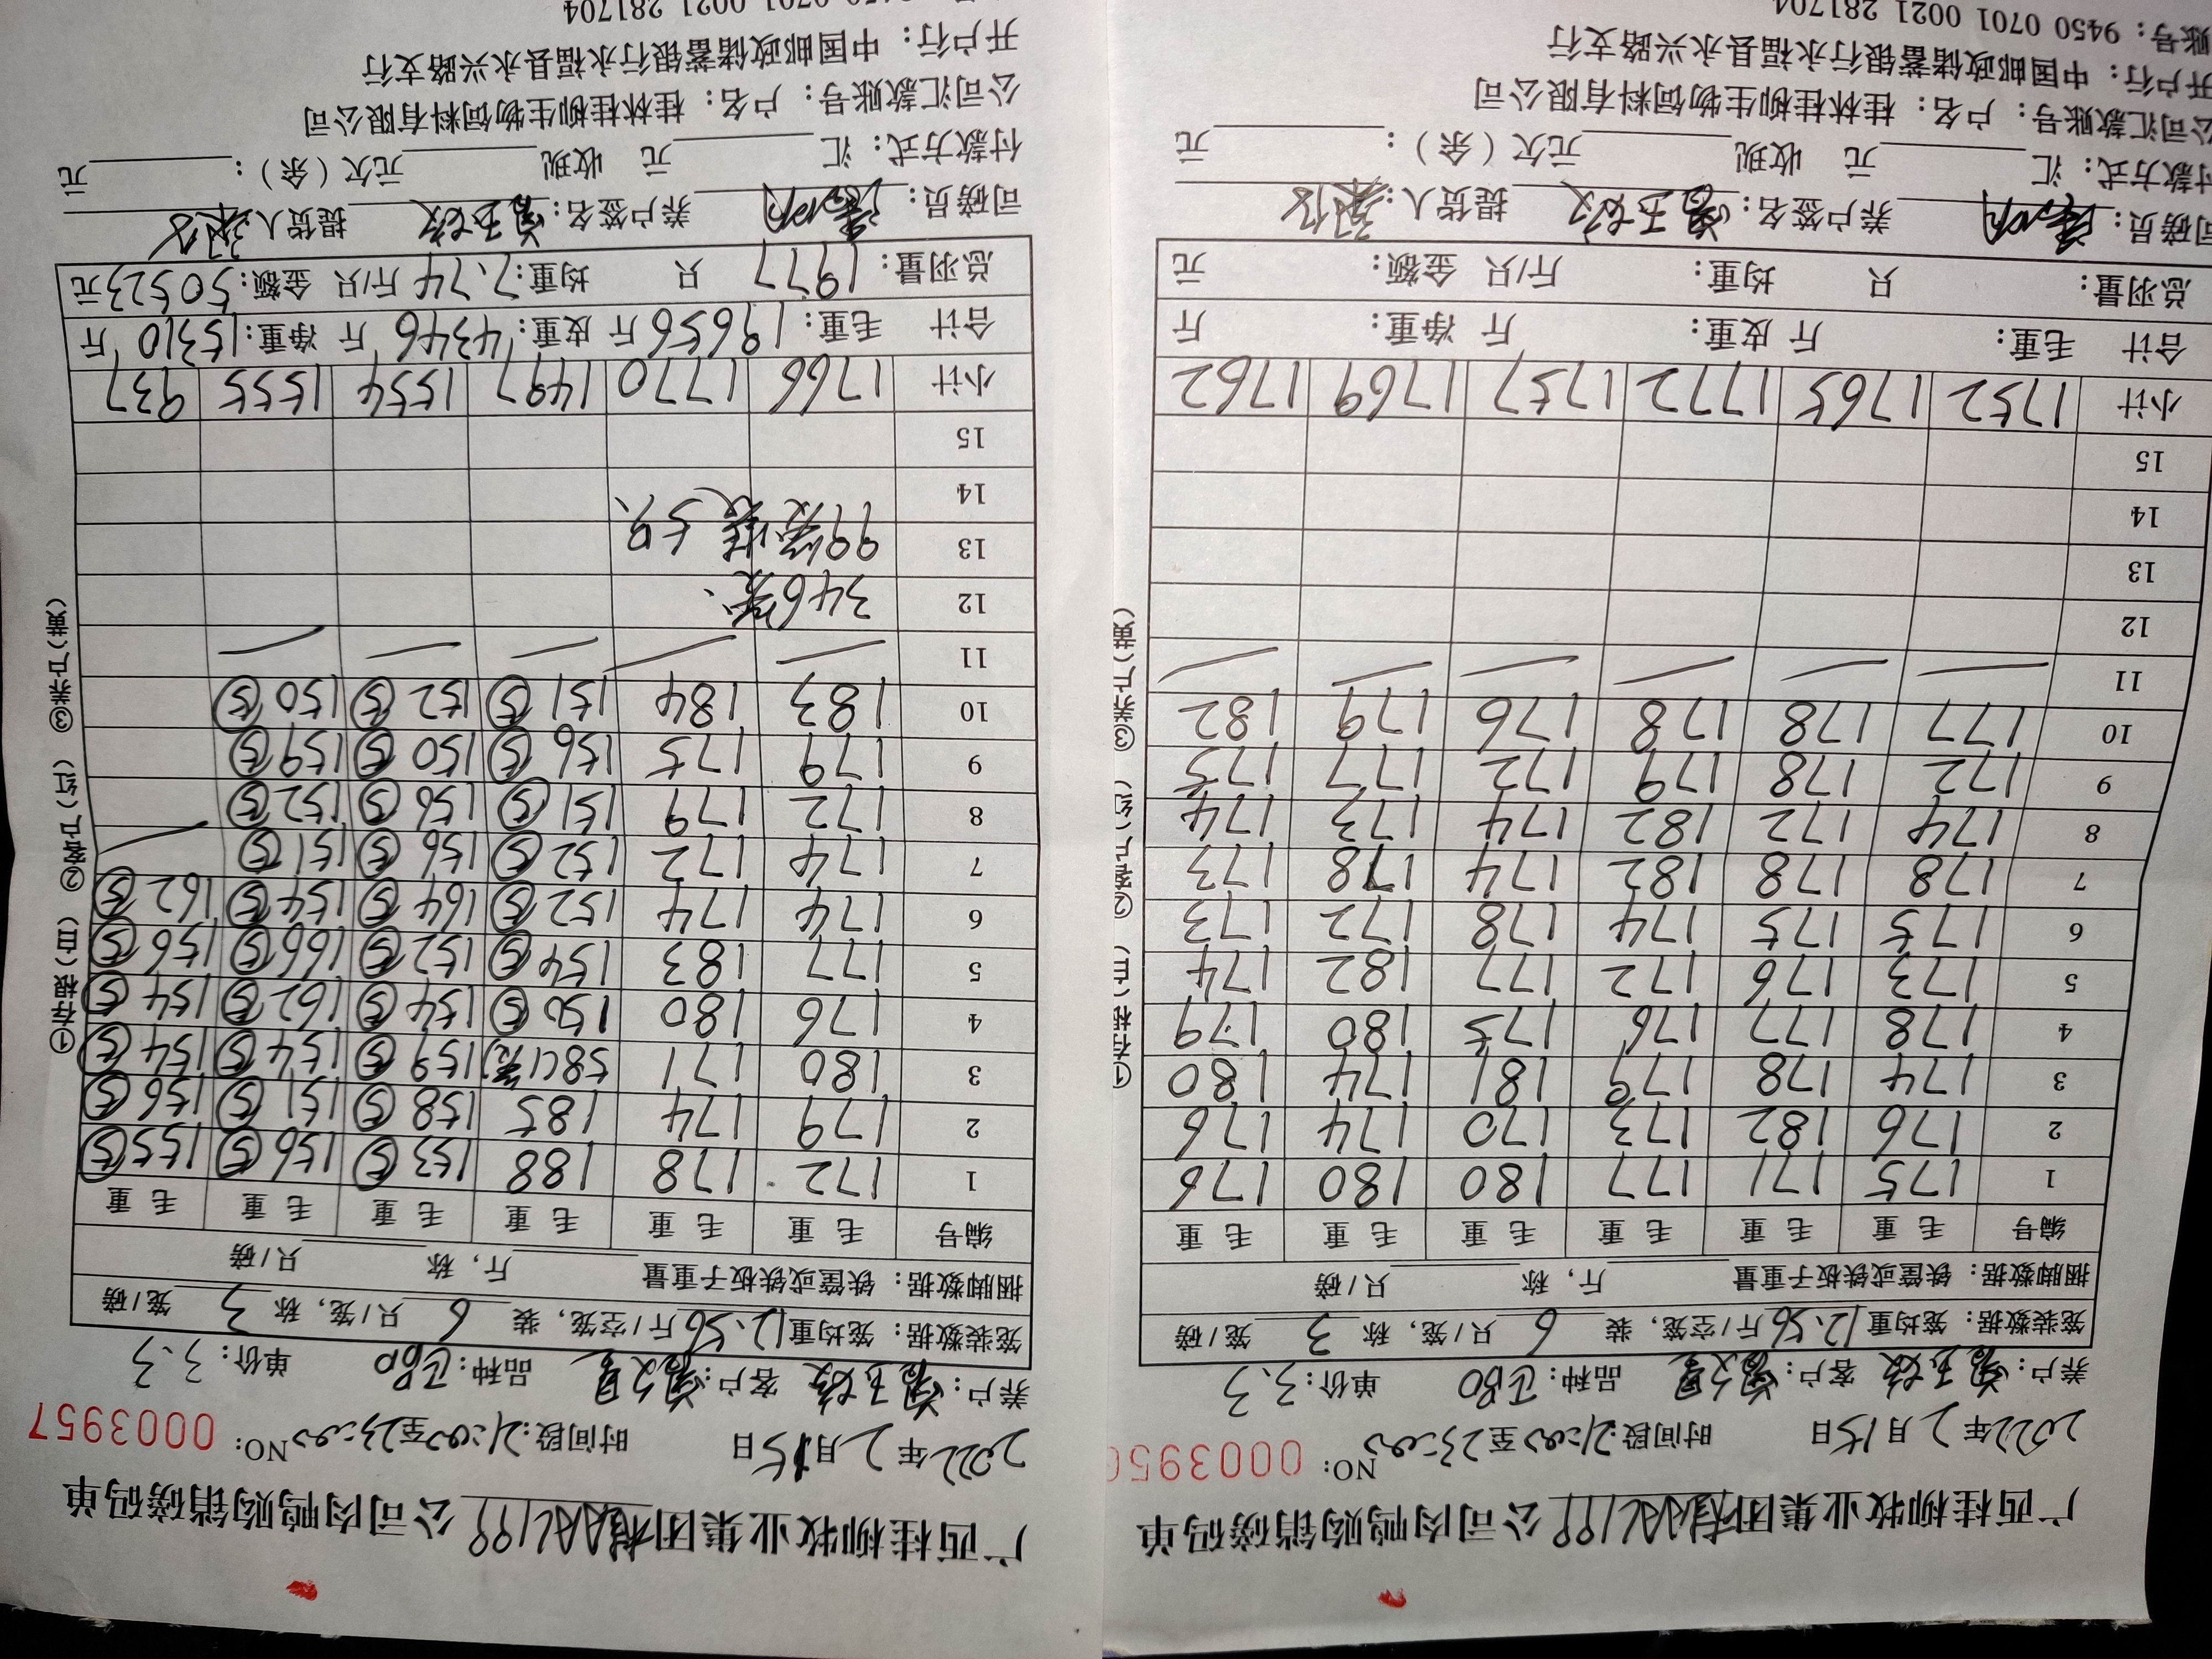 广西桂柳牧业集团 公司肉鸭购销磅码单
2022年2月15日 时间段:21:00至23:00 NO: 000395
养户: 客户: 品种: 单价:3.3
笼装数据: 笼均重12.56斤/空笼, 装 6 只/笼, 称 3 笼/磅
捆脚数据: 铁筐或铁板子重量 斤, 称 只/磅
编号 毛重 毛重 毛重 毛重 毛重 毛重
1 175 171 177 180 180 176
2 176 182 173 170 174 176
3 174 178 179 181 174 180
4 178 177 176 175 180 179
5 173 176 172 177 182 174
6 175 175 174 178 172 173
7 178 178 182 174 178 173
8 174 172 182 174 173 174
9 172 178 179 172 177 175
10 177 178 178 176 179 182
11
12
13
14
15
小计 1752 1765 1772 1757 1769 1762
合计 毛重: 斤 皮重: 斤 净重: 斤
总羽量: 只 均重: 斤/只 金额: 元
司磅员: 养户签名: 提货人:
付款方式: 汇 元 收现 元欠(余): 元
公司汇款账号: 户名: 桂林桂柳生物饲料有限公司
开户行: 中国邮政储蓄银行永福县永兴路支行
账号: 9450 0701 0021 281704
①存根(白) ②客户(红) ③养户(黄)
广西桂柳牧业集团 公司肉鸭购销磅码单
2022年2月15日 时间段:21:00至23:00 NO: 0003957
养户: 客户: 品种: 单价:3.3
笼装数据: 笼均重12.56斤/空笼, 装 6 只/笼, 称 3 笼/磅
捆脚数据: 铁筐或铁板子重量 斤, 称 只/磅
编号 毛重 毛重 毛重 毛重 毛重 毛重
1 172 178 188 153⑤ 156⑤ 155⑤
2 179 174 185 158⑤ 151⑤ 156⑤
3 180 171 58(1笼) 159⑤ 154⑤ 154⑤
4 176 180 150⑤ 154⑤ 162⑤ 154⑤
5 177 183 154⑤ 152⑤ 166⑤ 156⑤
6 174 174 152⑤ 164⑤ 154⑤ 162⑤
7 174 172 152⑤ 156⑤ 151⑤
8 172 179 151⑤ 156⑤ 152⑤
9 179 175 156⑤ 150⑤ 159⑤
10 183 184 151⑤ 152⑤ 150⑤
11
12 346笼、
13 99笼装5只
14
15
小计 1766 1770 1497 1554 1555 937
合计 毛重:19656斤 皮重:4346斤 净重:15310斤
总羽量:1977只 均重:7.74斤/只 金额:50523元
司磅员: 养户签名: 提货人:
付款方式: 汇 元 收现 元欠(余): 元
公司汇款账号: 户名: 桂林桂柳生物饲料有限公司
开户行: 中国邮政储蓄银行永福县永兴路支行
9450 0701 0021 281704
①存根(白) ②客户(红) ③养户(黄)